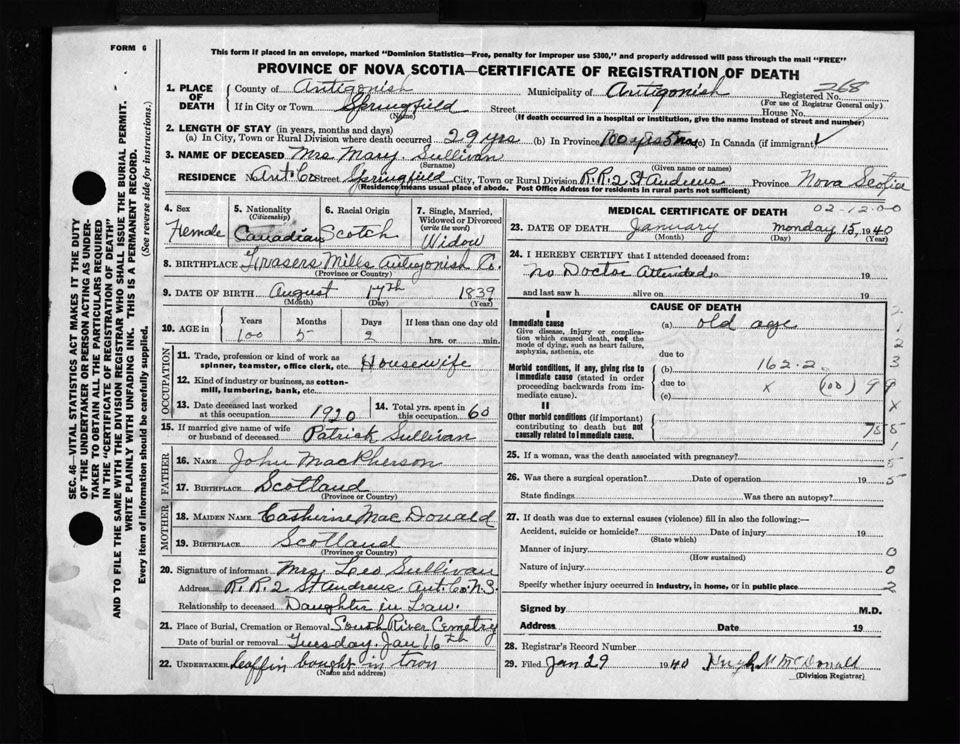 FORM 6
This form if placed in an envelope, marked "Dominion Statistics—Free, penalty for improper use $300," and properly addressed will pass through the mail "FREE"
PROVINCE OF NOVA SCOTIA—CERTIFICATE OF REGISTRATION OF DEATH
1. PLACE OF DEATH County of Antigonish Municipality of Antigonish Registered No. 268
(For use of Registrar General only)
If in City or Town Springfield Street House No.
(Name) (If death occurred in a hospital or institution, give the name instead of street and number)
2. LENGTH OF STAY (in years, months and days)
(a) In City, Town or Rural Division where death occurred 29 yrs (b) In Province 100 yrs 5 mos (c) In Canada (if immigrant)
3. NAME OF DECEASED Mrs Mary. Sullivan
(Surname) (Given name or names)
RESIDENCE No. Ant. Co Street Springfield City, Town or Rural Division R.R.2 St Andrews Province Nova Scotia
(Residence means usual place of abode. Post Office Address for residents in rural parts not sufficient)
4. Sex Female
5. Nationality (Citizenship) Canadian
6. Racial Origin Scotch
7. Single, Married, Widowed or Divorced (write the word) Widow
8. BIRTHPLACE Frasers Mills Antigonish Co.
(Province or Country)
9. DATE OF BIRTH August 17th 1839
(Month) (Day) (Year)
10. AGE in Years Months Days If less than one day old
100 5 2 hrs. or min.
OCCUPATION
11. Trade, profession or kind of work as spinner, teamster, office clerk, etc. Housewife
12. Kind of industry or business, as cotton-mill, lumbering, bank, etc.
13. Date deceased last worked at this occupation 1920 14. Total yrs. spent in this occupation 60
15. If married give name of wife or husband of deceased Patrick Sullivan
FATHER
16. NAME John MacPherson
17. BIRTHPLACE Scotland
(Province or Country)
MOTHER
18. MAIDEN NAME Catherine MacDonald
19. BIRTHPLACE Scotland
(Province or Country)
20. Signature of informant Mrs. Leo Sullivan
Address R.R.2 St Andrews Ant. Co. N.S.
Relationship to deceased Daughter in Law.
21. Place of Burial, Cremation or Removal South River Cemetry
Date of burial or removal Tuesday. Jan 16th
22. UNDERTAKER bought in town
(Name and address)
MEDICAL CERTIFICATE OF DEATH
02-12.00
23. DATE OF DEATH January monday 15, 1940
(Month) (Day) (Year)
24. I HEREBY CERTIFY that I attended deceased from:
No Doctor Attended to 19
and last saw h alive on 19
CAUSE OF DEATH
I
Immediate cause
Give disease, injury or complication which caused death, not the mode of dying, such as heart failure, asphyxia, asthenia, etc.
(a) old age
due to
Morbid conditions, if any, giving rise to immediate cause (stated in order proceeding backwards from immediate cause).
(b) 162.2
due to x (100) 99
(c)
II
Other morbid conditions (if important) contributing to death but not causally related to immediate cause.
75-5
25. If a woman, was the death associated with pregnancy?
26. Was there a surgical operation? Date of operation 19
State findings Was there an autopsy?
27. If death was due to external causes (violence) fill in also the following:—
Accident, suicide or homicide? Date of injury 19
(State which)
Manner of injury 0
(How sustained)
Nature of injury 0
Specify whether injury occurred in industry, in home, or in public place 2
Signed by M.D.
Address Date 19
28. Registrar's Record Number
29. Filed Jan 29 1940 Hugh M McDonald
(Division Registrar)
SEC. 46—VITAL STATISTICS ACT MAKES IT THE DUTY
OF THE UNDERTAKER OR PERSON ACTING AS UNDER-
TAKER TO OBTAIN ALL THE PARTICULARS REQUIRED
IN THE "CERTIFICATE OF REGISTRATION OF DEATH"
AND TO FILE THE SAME WITH THE DIVISION REGISTRAR WHO SHALL ISSUE THE BURIAL PERMIT.
WRITE PLAINLY WITH UNFADING INK. THIS IS A PERMANENT RECORD.
Every item of information should be carefully supplied. (See reverse side for instructions.)